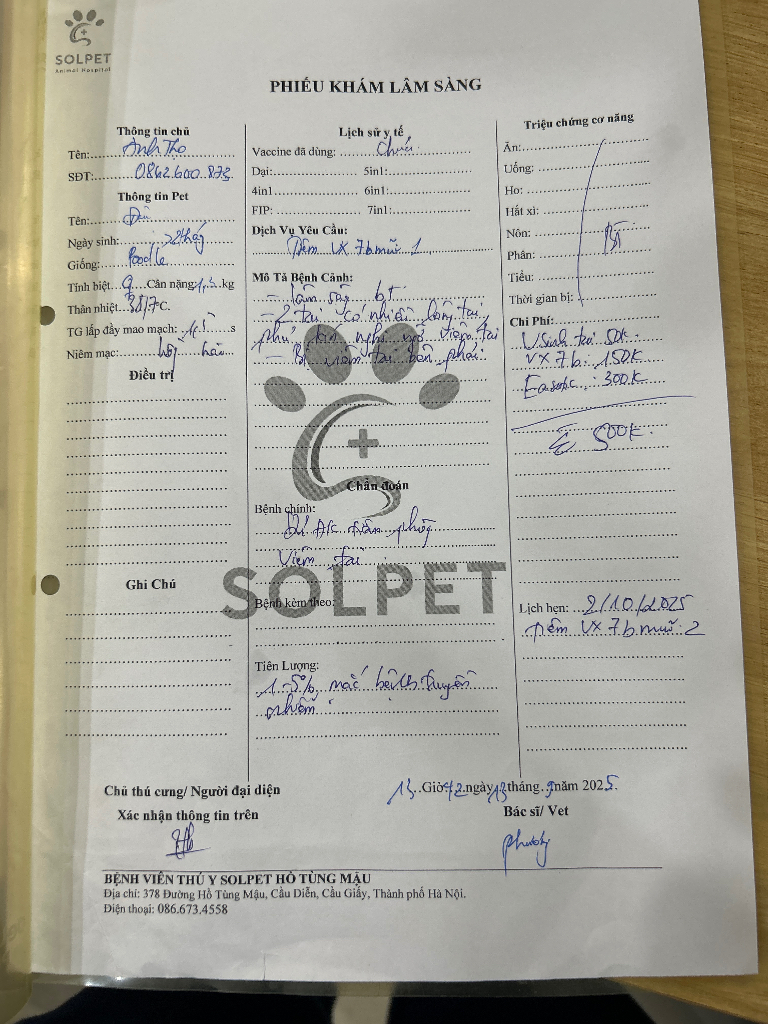 SOLPET
Animal Hospital
PHIẾU KHÁM LÂM SÀNG
Thông tin chủ
Tên: Anh Thọ
SĐT: 0862.600.873
Thông tin Pet
Tên: Đen
Ngày sinh: 22 tháng
Giống: Poodle
Tính biệt Cân nặng: kg
Thân nhiệt 38,7°C.
TG lấp đầy mao mạch: 1.5 s
Niêm mạc: hồng hào
Điều trị
Ghi Chú
Lịch sử y tế
Vaccine đã dùng: Chưa
Dại: 5in1:
4in1 6in1:
FIP: 7in1:
Dịch Vụ Yêu Cầu:
Tiêm VX 7b mũi 1
Mô Tả Bệnh Cảnh:
- Lâm sàng bt
- 2 tai có nhiều lông tai,
phủ kín nghi ngờ viêm tai
- Bị viêm tai bên phải
Chẩn đoán
Bệnh chính:
tiêm phòng
Viêm tai
SOLPET
Bệnh kèm theo:
Tiên Lượng:
1-5% mắc bệnh truyền
nhiễm
Triệu chứng cơ năng
Ăn:
Uống:
Ho:
Hắt xì:
Nôn: Bt
Phân:
Tiểu:
Thời gian bị:
Chi Phí:
Vsinh tai 50K
VX 7b: 150K
Easotic: 300K
500K
Lịch hẹn: 2/10/2025
Tiêm VX 7b mũi 2
Chủ thú cưng/ Người đại diện
Xác nhận thông tin trên
13 Giờ 42 ngày 13 tháng 9 năm 2025.
Bác sĩ/ Vet
Phương
BỆNH VIÊN THÚ Y SOLPET HỒ TÙNG MẬU
Địa chỉ: 378 Đường Hồ Tùng Mậu, Cầu Diễn, Cầu Giấy, Thành phố Hà Nội.
Điện thoại: 086.673.4558